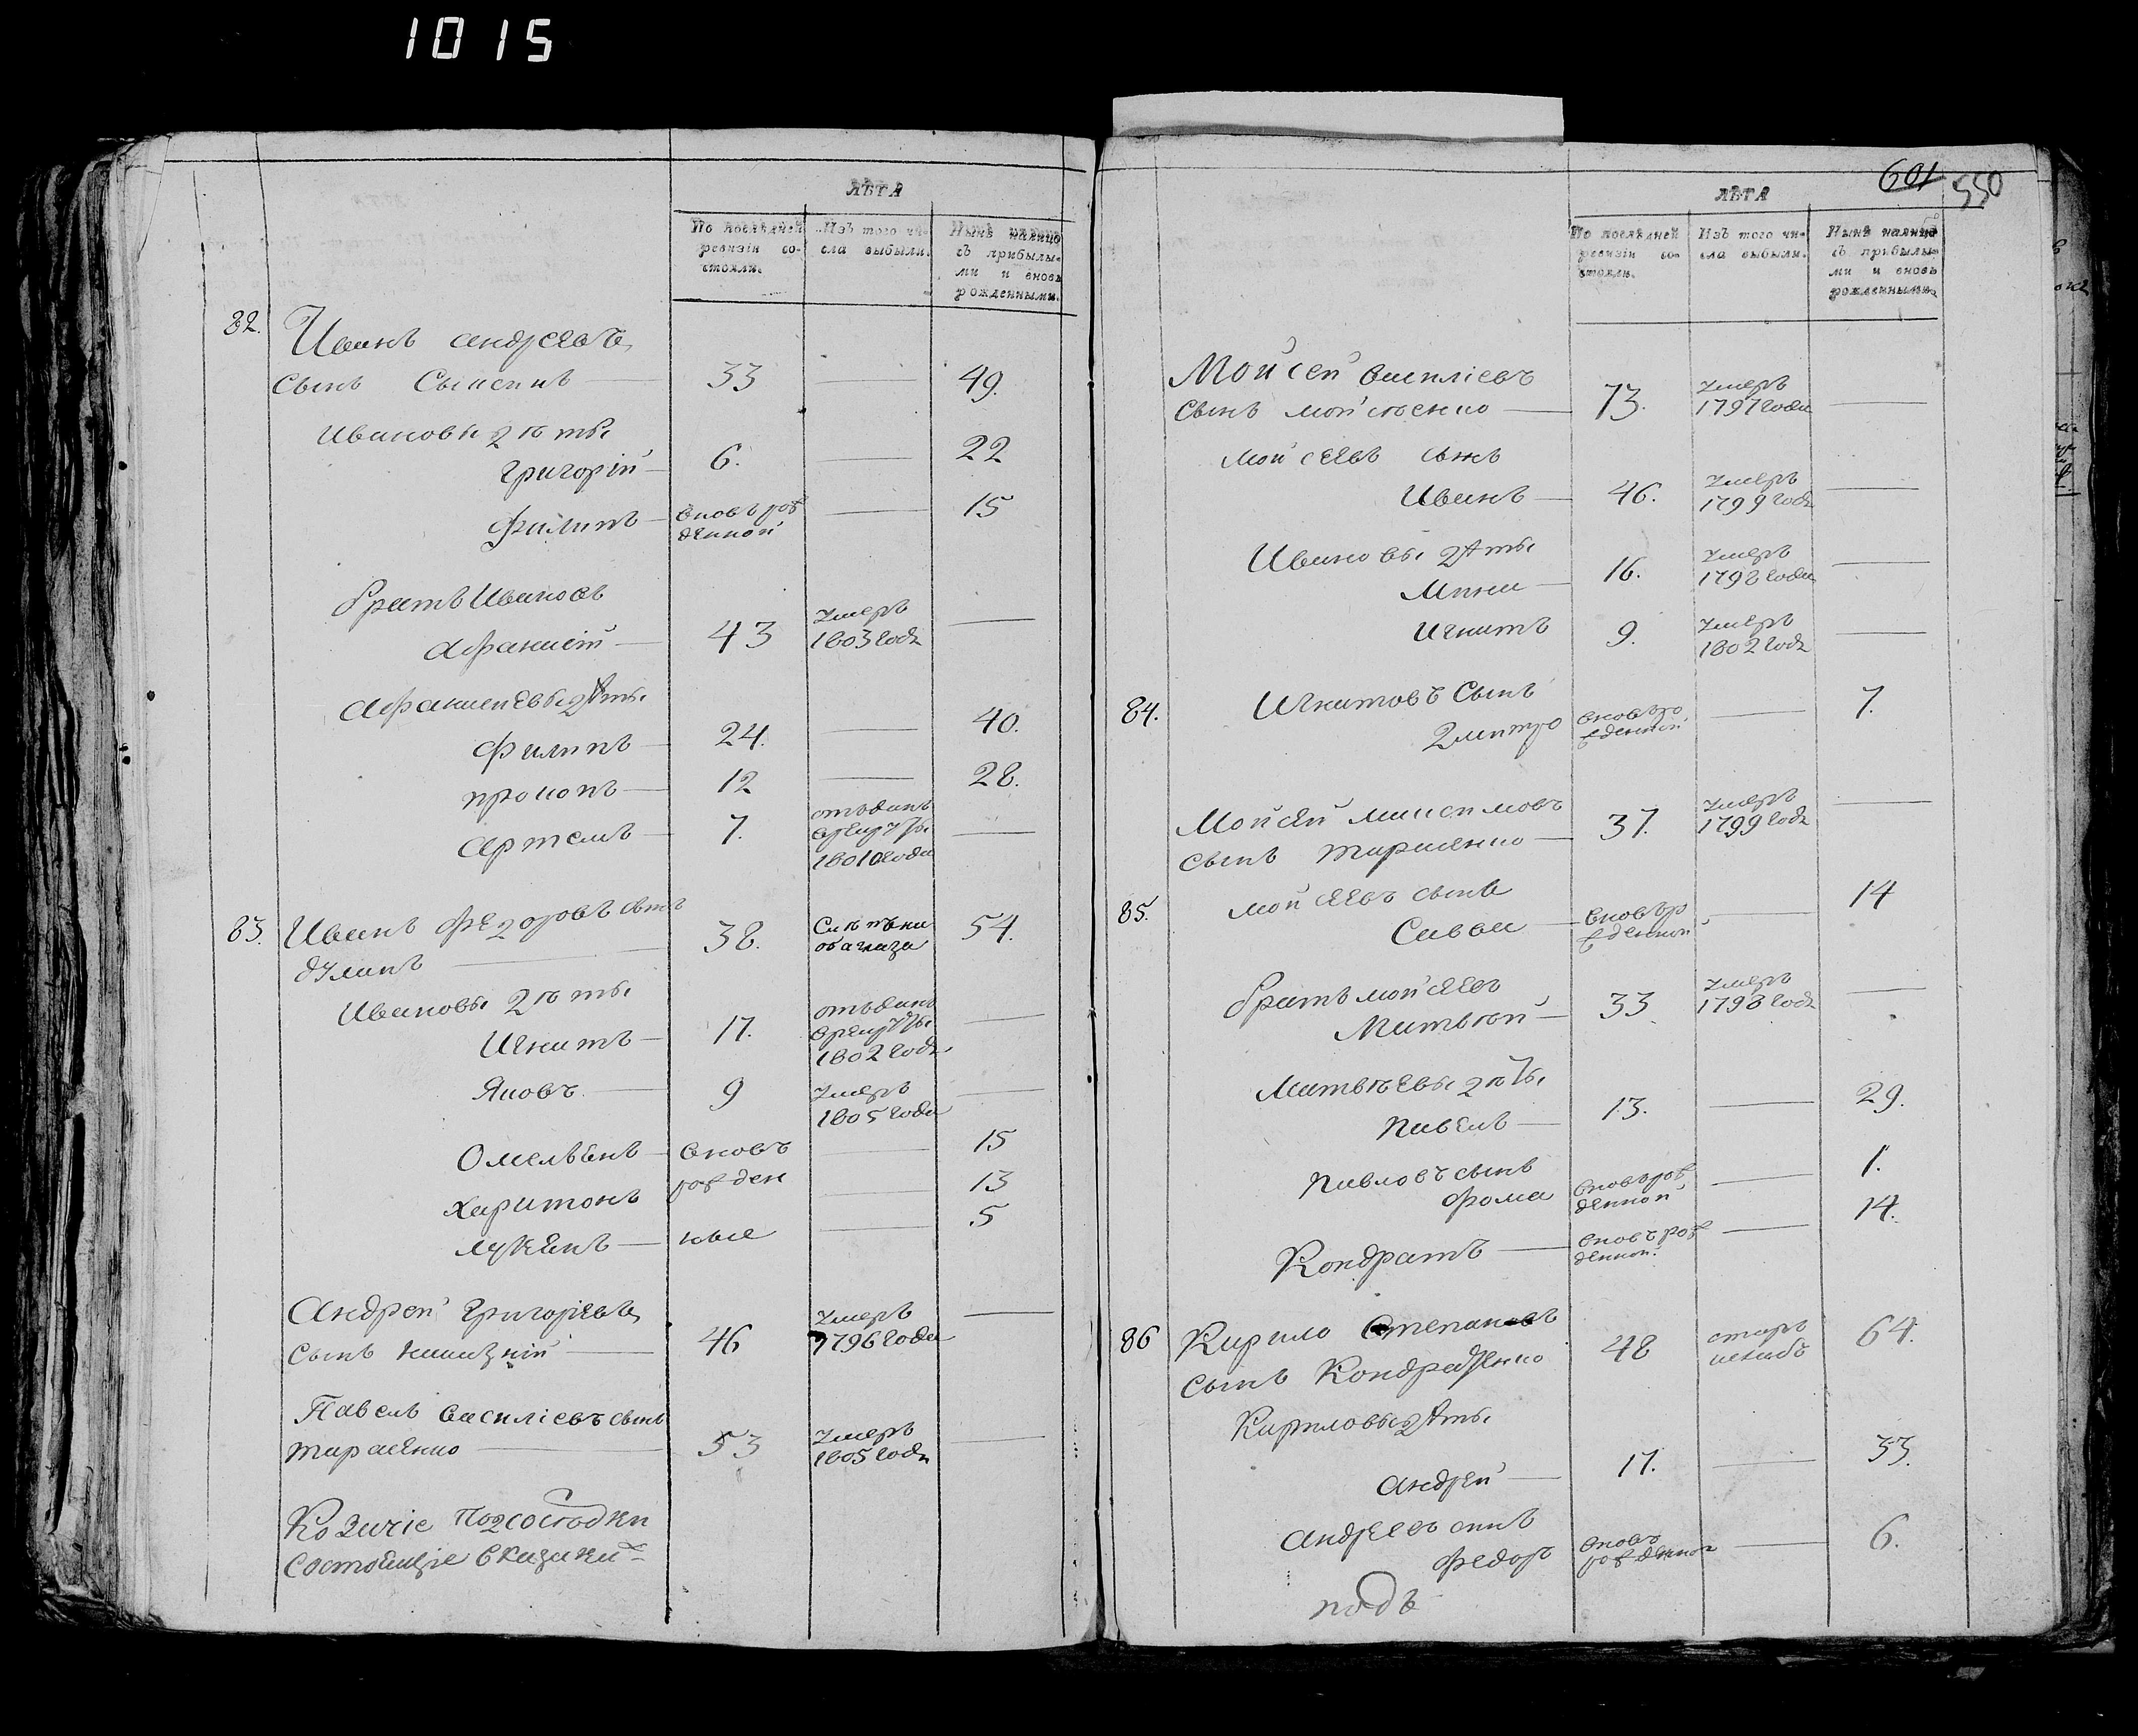 1015
ЛѢТА
По послѣдней ревизіи со-
стояли.
Изъ того чи-
сла выбыли.
Нынѣ налицо
съ прибылы-
ми и вновь
рожденными.
82. Иванъ Андреевъ
сынъ 33 — 49.
Ивановы дѣти
Григорій — 6. — 22
Филипъ — вновь рож
денной — 15
Братъ Ивановъ
Афанасій — 43 умеръ
1803 года —
Афанасиевы дѣти
Филипъ — 24. — 40.
Прокопъ — 12 — 28.
Артемъ — 7. отъданъ
врекруты
1801 года —
83. Иванъ Федоровъ сынъ
38. 54.
Ивановы дѣти
Игнатъ — 17. отъданъ
врекруты
1802 года —
Яковъ — 9 умеръ
1805 года —
Омельянъ — вновь — 15
Харитонъ рожден — 13
Лукьянъ — ные — 5
Андрей Григорьевъ
сынъ 46 умеръ
1796 года —
Павелъ Василіевъ сынъ
Тарасенко — 53 умеръ
1805 года —
Козачіе подсоседки
601 550
ЛѢТА
По послѣдней
ревизіи со-
стояли.
Изъ того чи-
сла выбыли.
Нынѣ налицо
съ прибылы-
ми и вновь
рожденными.
Мойсей Василіевъ
сынъ Мойсеенко — 73. умеръ
1797 года —
Мойсеевъ сынъ
Иванъ — 46. умеръ
1799 года —
Ивановы дѣти
16. умеръ
1798 года —
Игнатъ 9. умеръ
1802 года —
84. Игнатовъ сынъ
Дмитро вновь ро
жденной — 7.
Мойсей Максимовъ
сынъ Тарасенко — 37. умеръ
1799 года —
85. Мойсеевъ сынъ
Савва — вновь ро
жденной — 14
Братъ Мойсеевъ
Матвѣй — 33 умеръ
1798 года —
Матвѣевы дѣти
Павелъ — 13. — 29.
Павловъ сынъ
Фома вновь рож
денной — 1.
Кондратъ — вновь рож
денной. — 14.
86 Кирило Степановъ
сынъ Кондратенко 48 64.
Кириловы дѣти
Андрей — 17. — 33.
Андреевъ синъ
Федоръ вновь
рожденной — 6.
подъ